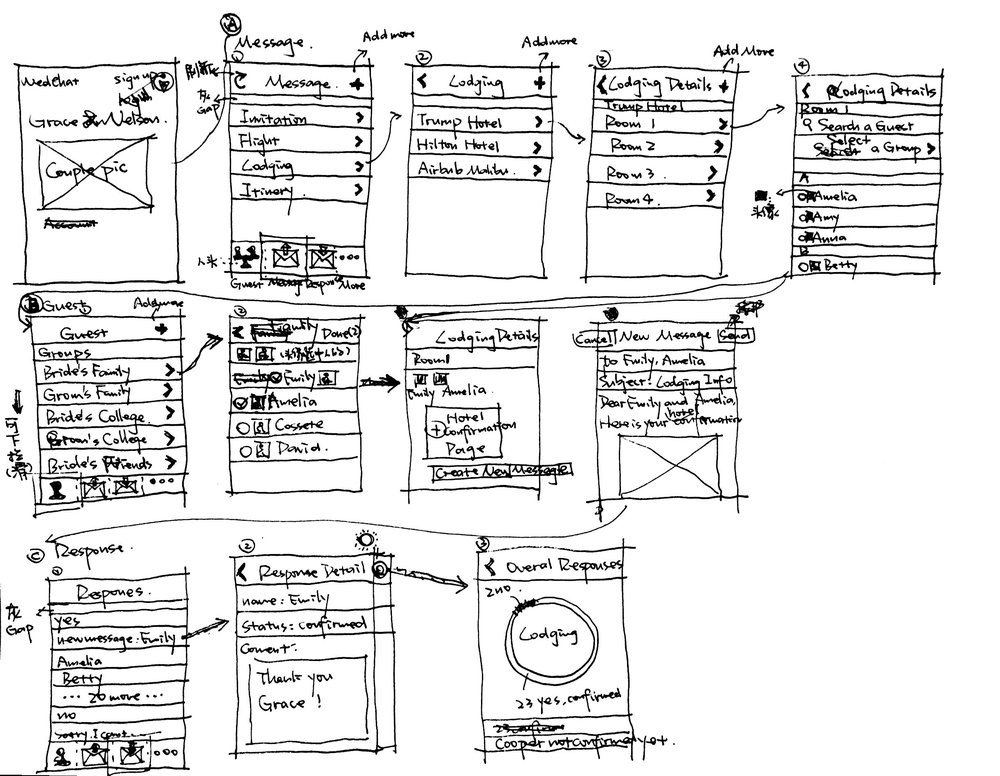 A
Message.
Add more
Add more
Add More
WedChat
sign up
Grace & Nelson.
Couple pic
Account
刷新
灰
Gap
①
Message. +
Invitation
Flight
Lodging
Itinery.
人头
Guest Message Respons More
②
Lodging +
Trump Hotel
Hilton Hotel
Airbnb Malibu.
③
Lodging Details +
Trump Hotel
Room 1
Room 2
Room 3
Room 4.
④
Lodging Details
Room 1
Search a Guest
Select
Search a Group
头像
A
Amelia
Amy
Anna
B
Betty
B Guest
①
Add more
Guest +
Groups
Bride's Family
Grom's Family
Bride's College
Groom's College
Bride's Friends
可下拉
②
Family
Done(2)
Emily Emily
Amelia
Cossete
David.
Lodging Details
Room1
Emily Amelia.
Hotel
Confirmation
Page
Create New Message
Cancel New Message Send
to Emily, Amelia
Subject: Lodging Info
Dear Emily and Amelia,
hotel
Here is your confirmation
C Response.
灰
Gap
Respones.
yes
new message: Emily
Amelia
Betty
... 20 more ...
no
sorry, I cant...
②
Response Detail
name: Emily
status: confirmed
Coment:
Thank you
Grace !
③
Overal Responses
2 no.
Lodging
23 yes, confirmed
Cooper not confirmed yet.